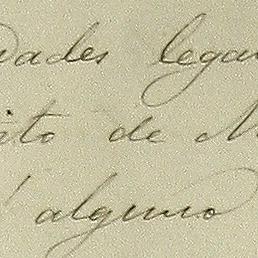 dades legan
ito de M
alguno